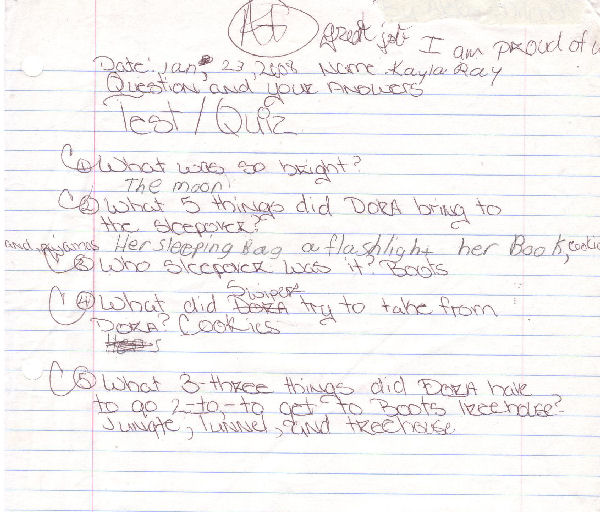 A+ great job I am proud of
Date: Jan, 23, 2008 Name Kayla Ray
Question and your Answers
Test / Quiz
C ① What was so bright?
The moon
C ② What 5 things did DORA bring to
the sleepover?
and, pajamas Her sleeping Bag a flashlight her Book,
C ③ Who sleepover was it? Boots
Swiper
C ④ What did DORA try to take from
DORA? Cookies
C ⑤ What 3-three things did DORA have
to go 2-to,-to get-to Boots Treehouse?
Jungle, Tunnel, and treehouse